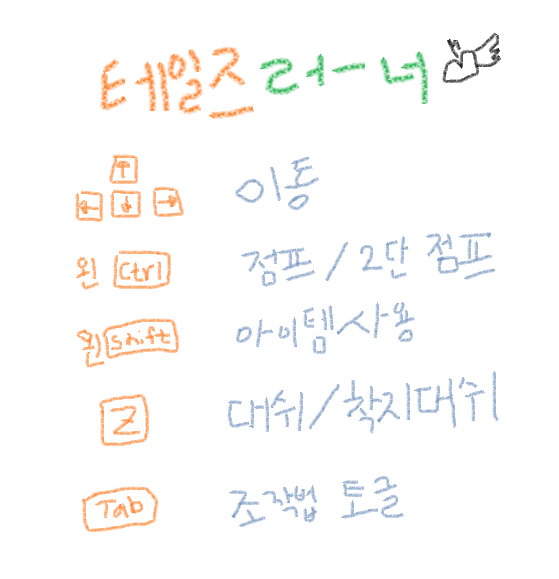 테일즈러너
↑
← ↓ → 이동
왼 Ctrl 점프 / 2단 점프
왼 Shift 아이템사용
Z 대쉬/착지대쉬
Tab 조작법 토글